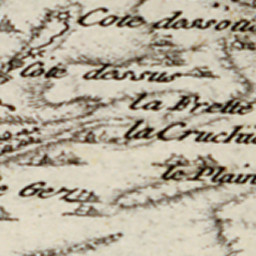 Cote dessou
Cote dessus
la Frette
la Cruchi
le Plain
Gez